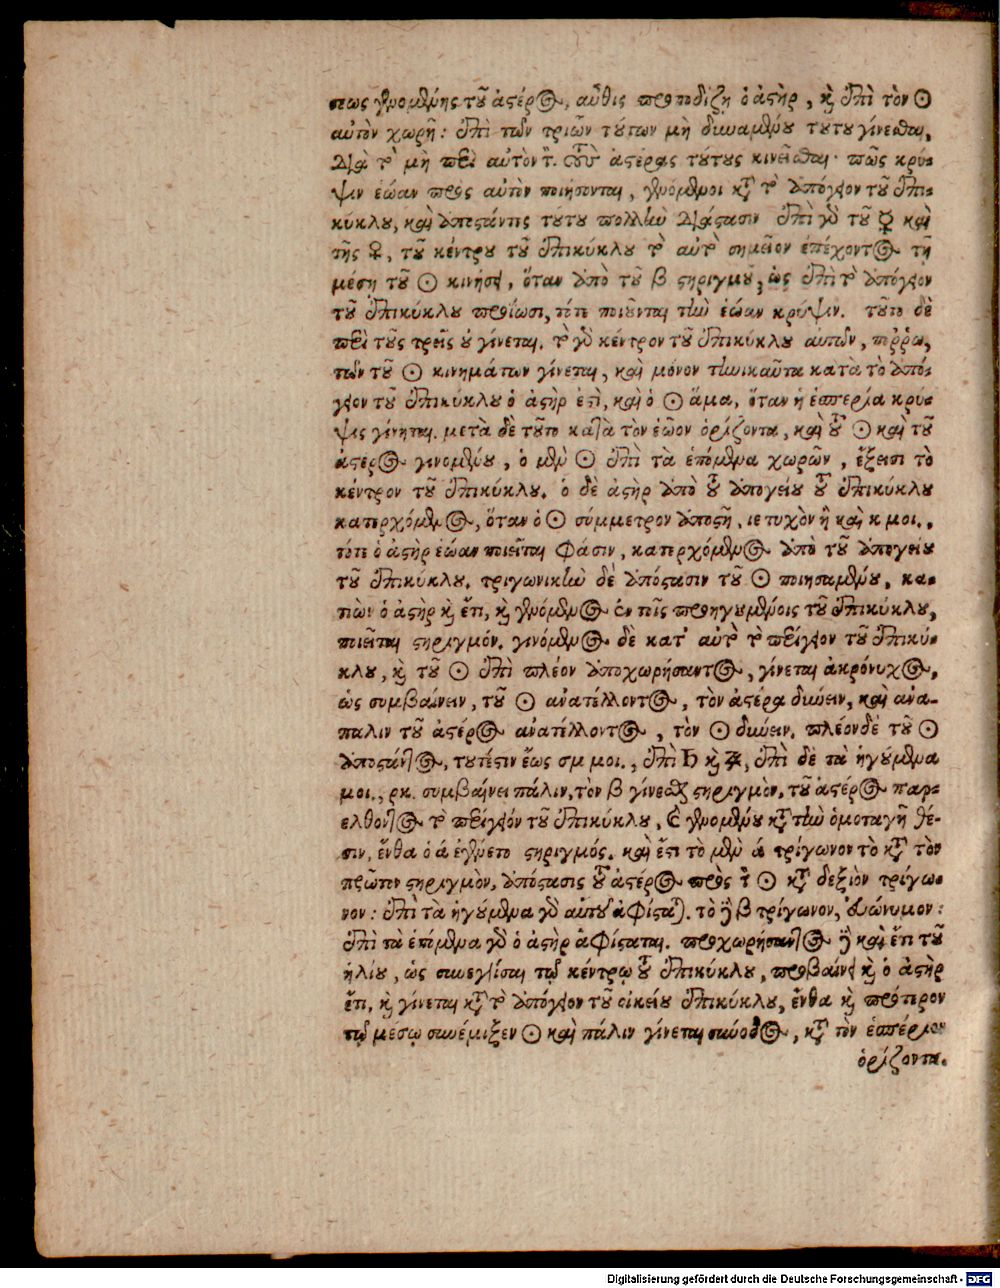 σεως γενομένης τοῦ ἀστέρος, αὖθις προποδίζῃ ὁ ἀστὴρ, καὶ ἐπὶ τὸν ☉
αὐτὸν χωρῇ: ἐπὶ τῶν τριῶν τούτων μὴ δυναμένου τούτου γίνεσθαι,
διὰ τὸ μὴ περὶ αὐτὸν τ. ἀστέρας τούτους κινεῖσθαι· πῶς κρύ-
ψιν ἑώαν πρὸς αὐτὸν ποιήσονται, γενόμενοι κατὰ τὸ ἀπόγειον τοῦ ἐπι-
κύκλου, καὶ ἀποστάντες τούτου πολλὴν διάστασιν ἐπὶ γὰρ τοῦ ☿ καὶ
τῆς ♀, τοῦ κέντρου τοῦ ἐπικύκλου τὸ αὐτὸ σημεῖον ἐπέχοντος τῇ
μέσῃ τοῦ ☉ κινήσει, ὅταν ἀπὸ τοῦ β στηριγμοῦ, ὡς ἐπὶ τὸ ἀπόγειον
τοῦ ἐπικύκλου προΐωσι, τότε ποιοῦνται τὴν ἑώαν κρύψιν. τοῦτο δὲ
περὶ τοὺς τρεῖς οὐ γίνεται. τὸ γὰρ κέντρον τοῦ ἐπικύκλου αὐτῶν, πόῤῥω,
τῶν τοῦ ☉ κινημάτων γίνεται, καὶ μόνον τηνικαῦτα κατὰ τὸ ἀπό-
γειον τοῦ ἐπικύκλου ὁ ἀστὴρ ἐστὶ, καὶ ὁ ☉ ἅμα, ὅταν ἡ ἑσπερία κρύ-
ψις γίνηται. μετὰ δὲ τοῦτο κατὰ τὸν ἑῶον ὁρίζοντα, καὶ τοῦ ☉ καὶ τοῦ
ἀστέρος γινομένου, ὁ μὲν ☉ ἐπὶ τὰ ἑπόμενα χωρῶν, ἔξεισι τὸ
κέντρον τοῦ ἐπικύκλου. ὁ δὲ ἀστὴρ ἀπὸ τοῦ ἀπογείου τοῦ ἐπικύκλου
κατερχόμενος, ὅταν ὁ ☉ σύμμετρον ἀποστῇ, ιε τυχὸν ἢ καὶ κ μοι.,
τότε ὁ ἀστὴρ ἑώαν ποιεῖται φάσιν, κατερχόμενος ἀπὸ τοῦ ἀπογείου
τοῦ ἐπικύκλου. τριγωνικὴν δὲ ἀπόστασιν τοῦ ☉ ποιησαμένου, κα-
τιὼν ὁ ἀστὴρ καὶ ἔτι, καὶ γενόμενος ἐν τοῖς προηγουμένοις τοῦ ἐπικύκλου,
ποιεῖται στηριγμόν. γινόμενος δὲ κατ' αὐτὸ τὸ περίγειον τοῦ ἐπικύ-
κλου, καὶ τοῦ ☉ ἐπὶ πλέον ἀποχωρήσαντος, γίνεται ἀκρόνυχος,
ὡς συμβαίνειν, τοῦ ☉ ἀνατέλλοντος, τὸν ἀστέρα δύνειν, καὶ ἀνά-
παλιν τοῦ ἀστέρος ἀνατέλλοντος, τὸν ☉ δύνειν. πλέον δὲ τοῦ ☉
ἀποστάντος, τουτέστιν ἕως σμ μοι., ἐπὶ ♄ καὶ ♃, ἐπὶ δὲ τὰ ἡγούμενα
μοι., ρκ. συμβαίνει πάλιν, τὸν β γίνεσθαι στηριγμὸν, τοῦ ἀστέρος παρ-
ελθόντος τὸ περίγειόν τοῦ ἐπικύκλου, καὶ γενομένου κατὰ τὴν ὁμοταγῆ θέ-
σιν, ἔνθα ὁ ά ἐγένετο στηριγμός. καὶ ἔστι τὸ μὲν ά τρίγωνον τὸ κατὰ τὸν
πρῶτον στηριγμὸν, ἀπόστασις τοῦ ἀστέρος πρὸς τὸν ☉ κατὰ δεξιὸν τρίγω-
νον: ἐπὶ τὰ ἡγούμενα γὰρ αὐτοῦ ἀφίσταται. τὸ δὲ β τρίγωνον, εὐώνυμον:
ἐπὶ τὰ ἑπόμενα γὰρ ὁ ἀστὴρ ἀφίσταται. προχωρήσαντος δὲ καὶ ἔτι τοῦ
ἡλίου, ὡς συνεγγίσαι τῷ κέντρῳ τοῦ ἐπικύκλου, προβαίνει καὶ ὁ ἀστὴρ
ἔτι, καὶ γίνεται κατὰ τὸ ἀπόγειον τοῦ οἰκείου ἐπικύκλου, ἔνθα καὶ πρότερον
τῷ μέσῳ συνέμιξεν ☉ καὶ πάλιν γίνεται σύνοδος, κατὰ τὸν ἑσπέριον
ὁρίζοντα.
Digitalisierung gefördert durch die Deutsche Forschungsgemeinschaft - DFG